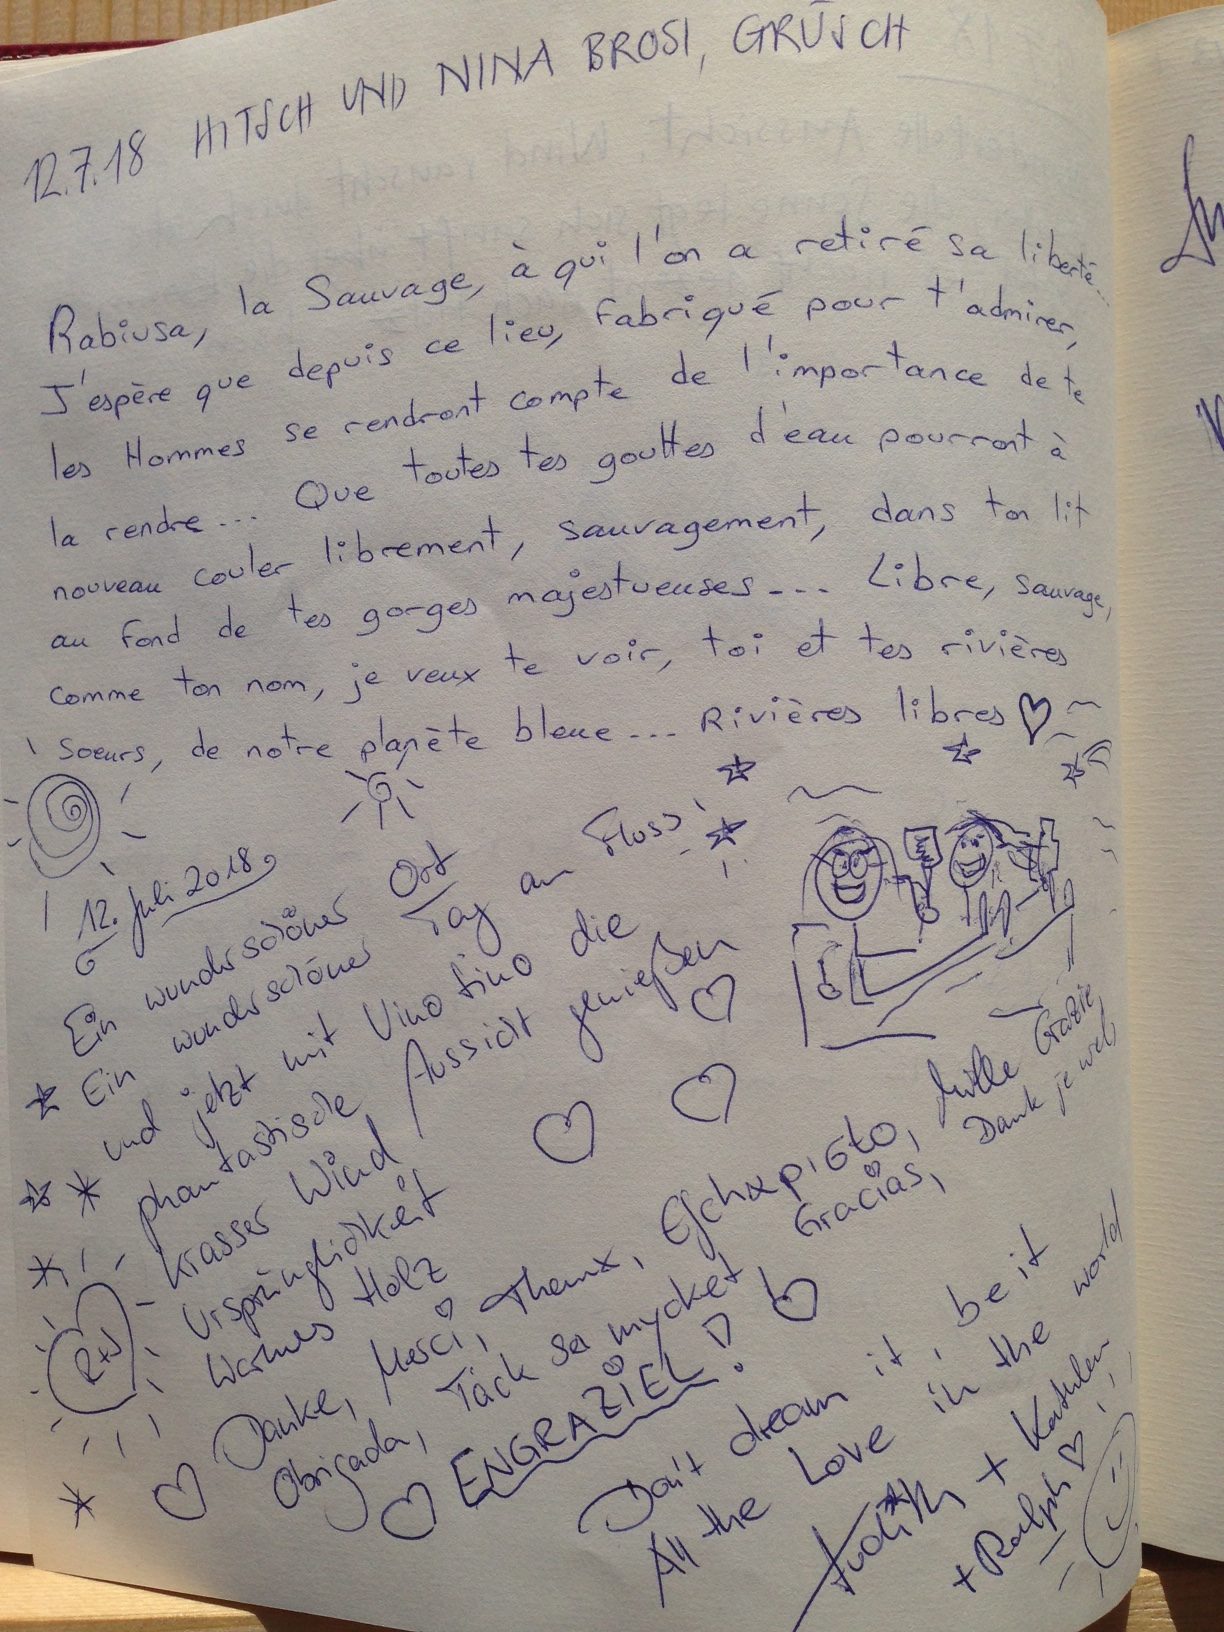 12.7.18 HITSCH UND NINA BROSI, GRÜSCH
Rabiusa, la Sauvage, à qui l'on a retiré sa liberté...
J'espère que depuis ce lieu, fabriqué pour t'admirer,
les Hommes se rendront compte de l'importance de te
la rendre... Que toutes tes gouttes d'eau pourront à
nouveau couler librement, sauvagement, dans ton lit
au fond de tes gorges majestueuses... Libre, sauvage,
comme ton nom, je veux te voir, toi et tes rivières
soeurs, de notre planète bleue... Rivières libres
12. Juli 2018
Ein wunderschöner Ort
Ein wunderschöner Tag am Fluss!
und jetzt mit Vino fino die
phantastische Aussicht genießen
krasser Wind
Ursprünglichkeit
Warmes Holz
R+J
Danke, Merci, Thanx, Efchapisto, Mille Grazie
Obrigada, Tack sa mycket Gracias, Dank je wel
ENGRAZIEL!
Don't dream it, be it
All the Love in the world
Judith +
+ Ralph